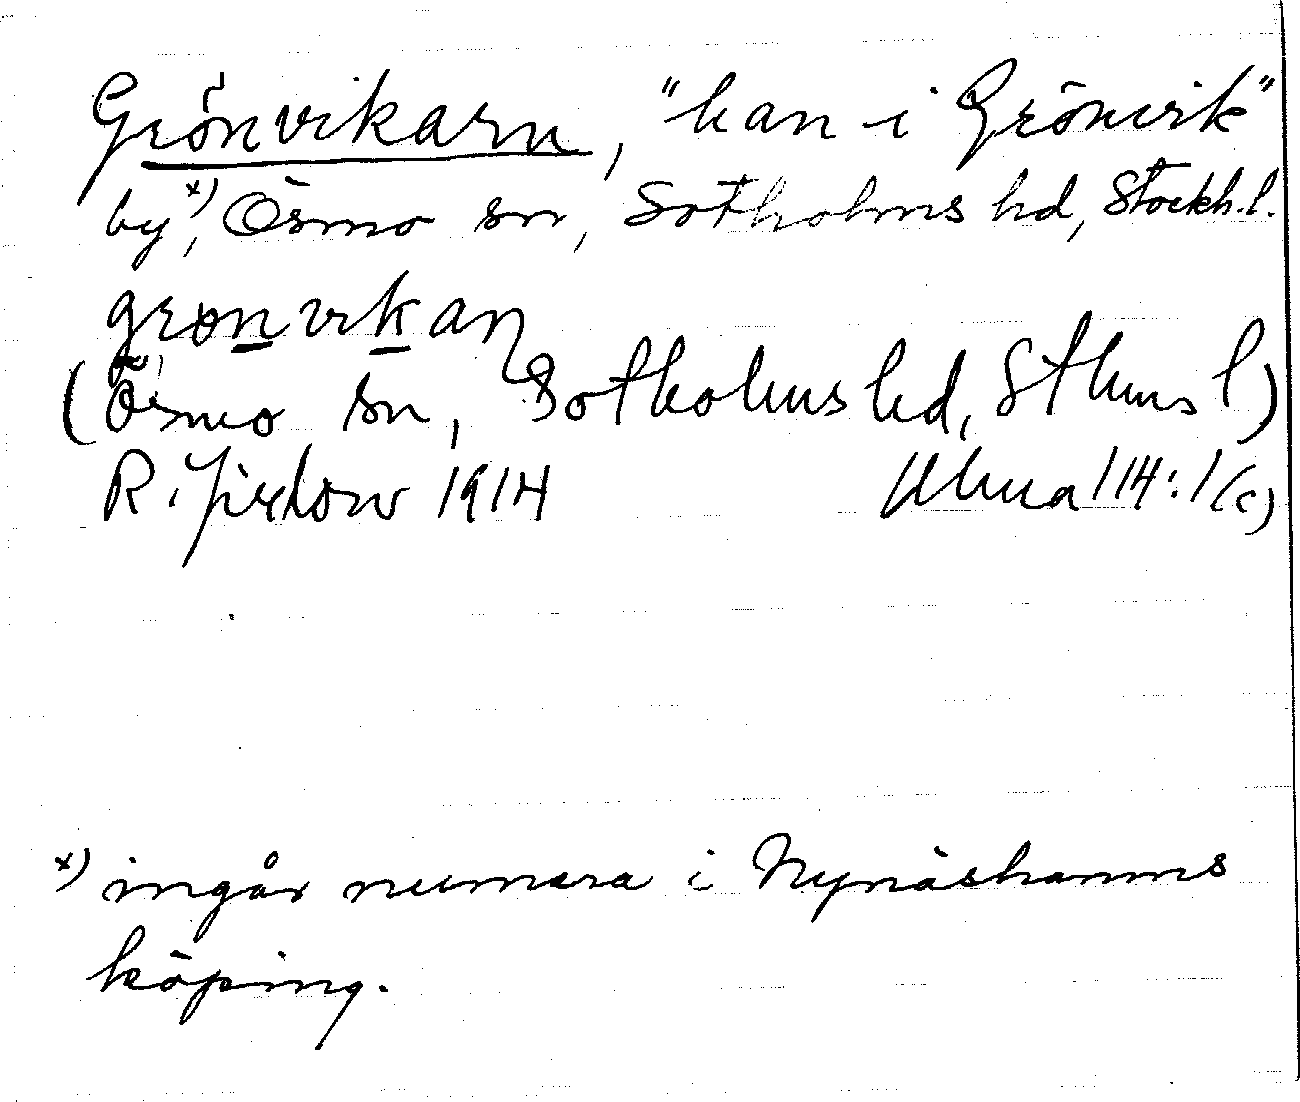 Grönvikarn, "han i Grönvik"
by x), Ösmo sn, Sotholms hd, Stockh.l.
grönvikan
(Ösmo sn, Sotholms hd, Sthms l)
R. Jirlow 1914 Ulma 114:1(c)
x) ingår numera i Nynäshamns
köping.